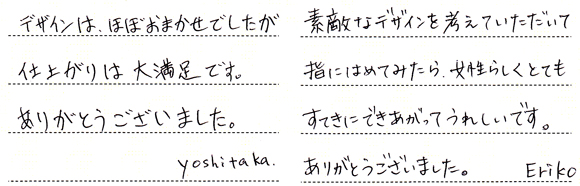 デザインは、ほぼおまかせでしたが
仕上がりは大満足です。
ありがとうございました。
yoshitaka.
素敵なデザインを考えていただいて
指にはめてみたら、女性らしくとても
すてきにできあがってうれしいです。
ありがとうございました。 Eriko